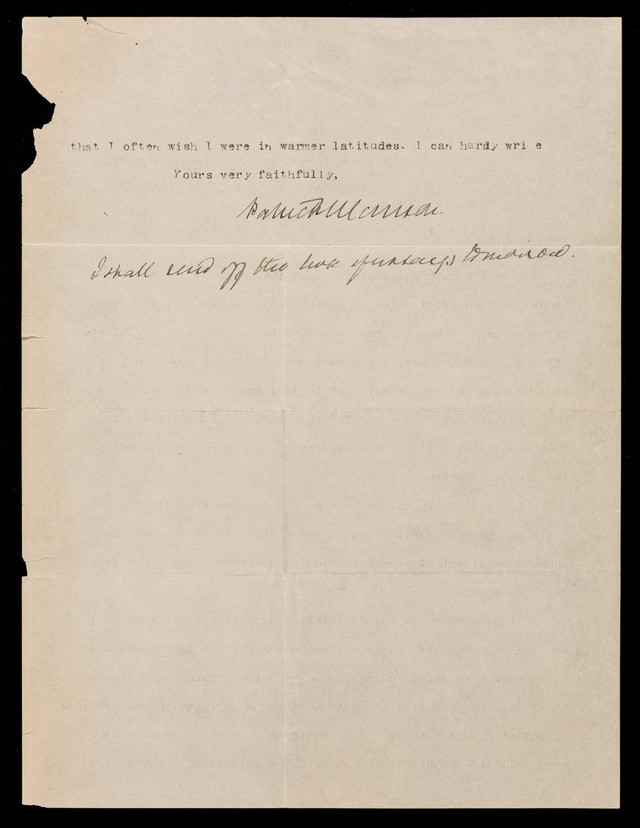 that I often wish I were in warmer latitudes. I can hardy wri e
Yours very faithfully,
Patrick Manson.
I shall send off the box tomorrow.